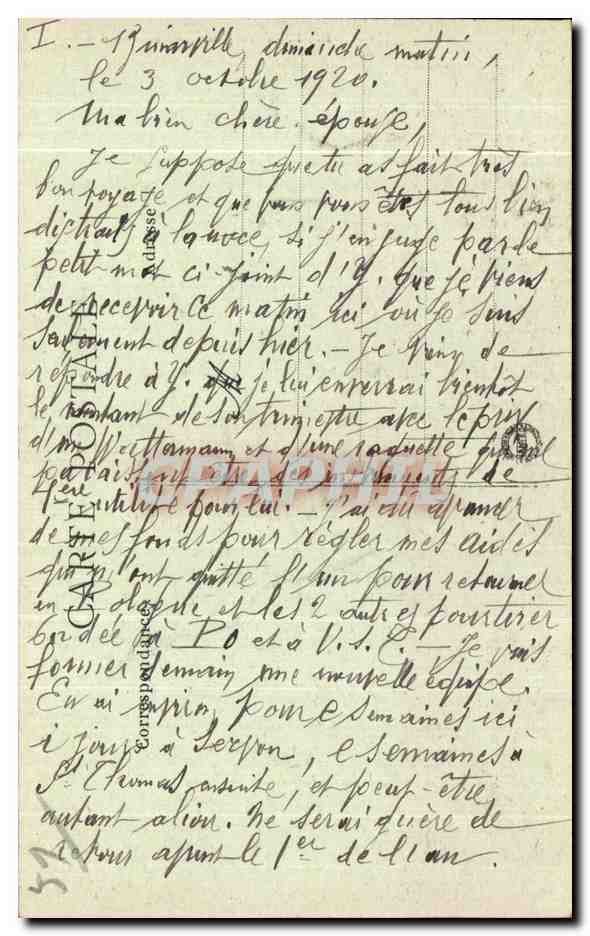 I. – Binarville, dimanche matin,
le 3 octobre 1920.
Ma bien chère épouse,
Je suppose que tu as fait très
bon voyage et que vous vous êtes tous bien
distraits à la noce, si j'en juge par le
petit mot ci-joint d'Y. que je viens
de recevoir ce matin ici où je suis
seulement depuis hier. – Je viens de
répondre à Y. que je lui enverrai bientôt
le montant de son trimestre avec le prix
d'un et d'une raquette qui me
paraissent des de
1ère utilité pour lui. – J'ai dû
de mes fonds pour régler mes aides
qui m'ont quitté l'un pour retourner
en et les 2 autres pour tirer
bordée à Po et à V.S.C. – Je vais
former demain une nouvelle équipe.
En ai pour 2 semaines ici
1 jour à Servon, 2 semaines à
St Thomas ensuite, et peut-être
autant . Ne serai guère de
retour avant le 1er de l'an.
CARTE POSTALE
Correspondance
Adresse
CPAPHIL